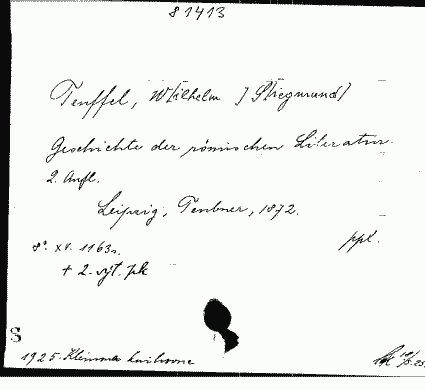 81413
Teuffel, W[ilhelm] S[iegmund]
Geschichte der römischen Literatur.
2. Aufl.
Leipzig, Teubner, 1872.
8° XV. 1163 s.
ppl.
+ 2. vyt. pk
S
1925. Klementa knihovna